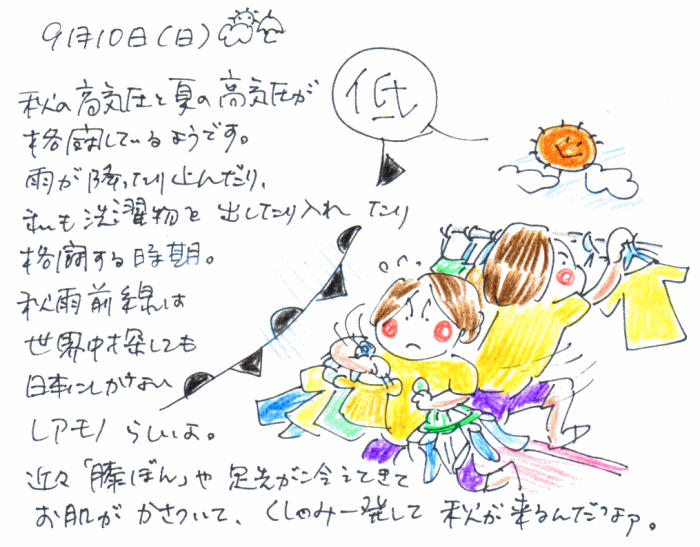 9月10日(日)
秋の高気圧と夏の高気圧が
格闘しているようです。
雨が降ったり止んだり、
私も洗濯物を出したり入れたり
格闘する時期。
秋雨前線は
世界中探しても
日本にしかない
レアモノらしいよ。
近々「膝ぼん」や足先が冷えてきて
お肌がかさついて、くしゃみ一発して秋が来るんだなァ。
低